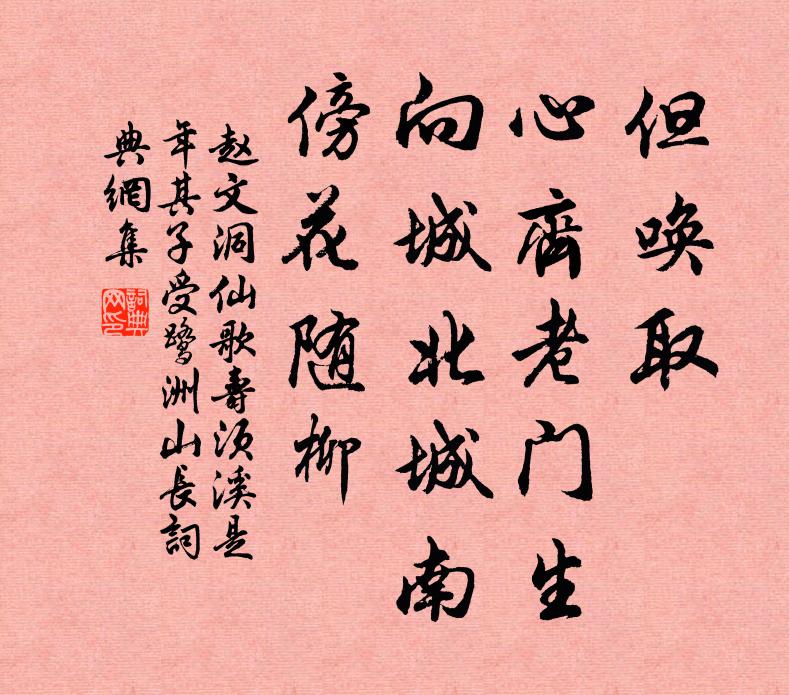 但唤取
心齊老门生
向城北城南
傍花随柳
赵文洞仙歌壽须溪是
年其子受鹭洲山長詞
典網集
詞典
网印